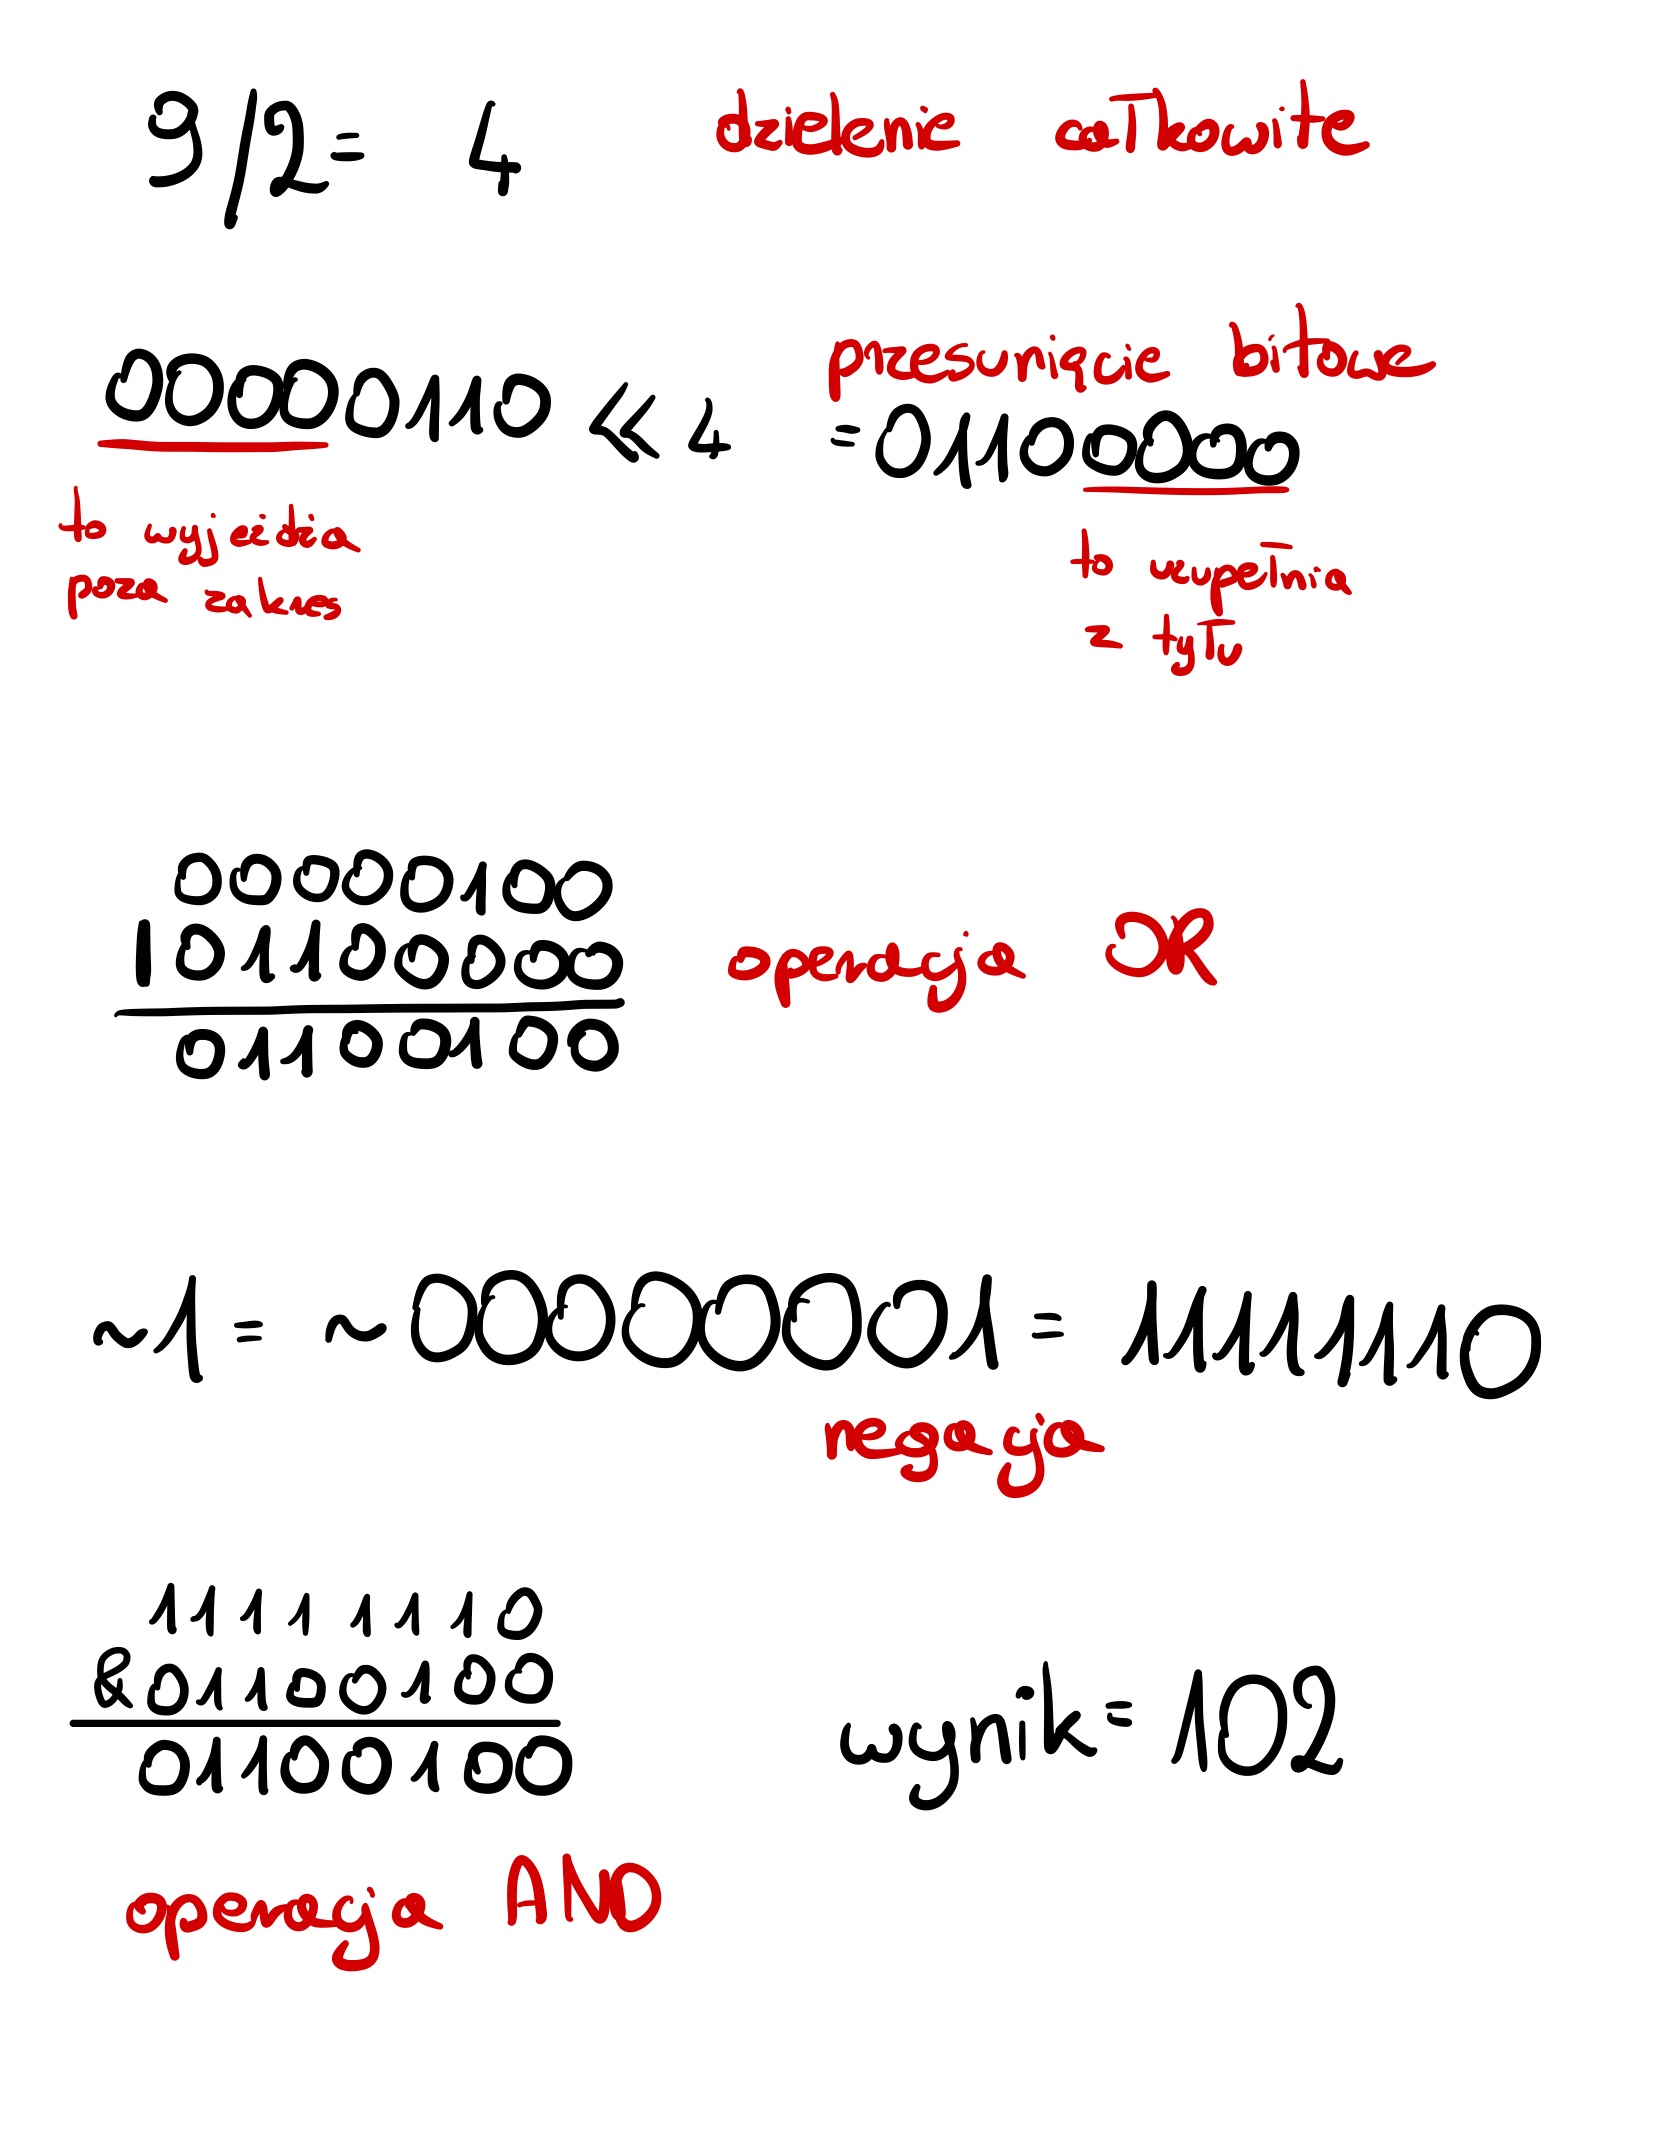 9/2= 4 dzielenie całkowite
przesunięcie bitowe
00000110 << 4 =01100000
to wyjeżdża
poza zakres
to uzupełnia
z tyłu
00000100
|01100000 operacja OR
01100100
~1 = ~00000001 = 11111110
negacja
11111110
&01100100
01100100 wynik=102
operacja AND